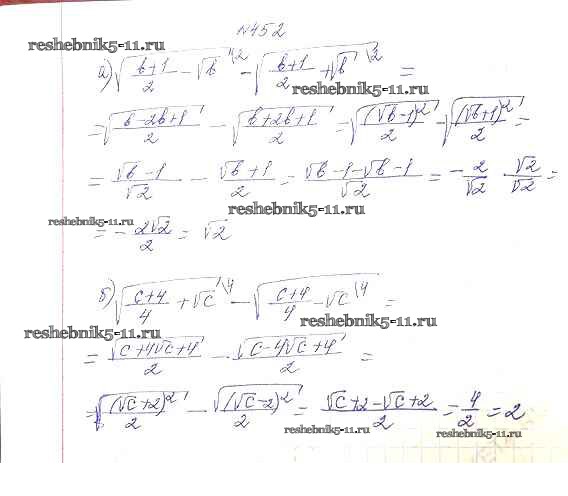 №452
reshebnik5-11.ru
а) √((b+1)/2 − √b)^{\2} − √((b+1)/2 + √b)^{\2} =
reshebnik5-11.ru
= √((b−2b+1)/2) − √((b+2b+1)/2) = √((√b−1)²/2) − √((√b+1)²/2) =
= (√b−1)/√2 − (√b+1)/2 = (√b−1−√b−1)/√2 = −2/√2 √2/√2 =
reshebnik5-11.ru
reshebnik5-11.ru
= −2√2/2 = √2
б) √((c+4)/4 + √c)^{\4} − √((c+4)/4 − √c)^{\4} =
reshebnik5-11.ru
reshebnik5-11.ru
= √(c+4√c+4)/2 − √(c−4√c+4)/2 =
= √(√c+2)²/2 − √(√c−2)²/2 = (√c+2−√c+2)/2 = 4/2 = 2
reshebnik5-11.ru
reshebnik5-11.ru